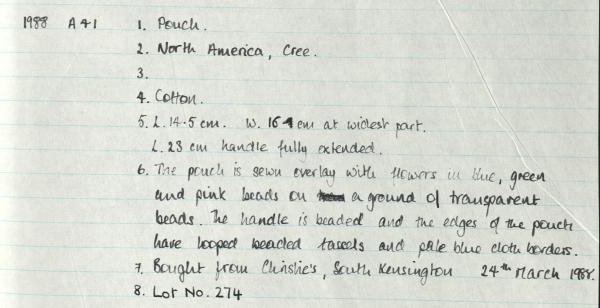 1988 A 41 1. Pouch.
2. North America, Cree.
3.
4. Cotton.
5. L. 14.5 cm. W. 16 cm at widest part.
L. 23 cm handle fully extended.
6. The pouch is sewn overlay with flowers in blue, green
and pink beads on a ground of transparent
beads. The handle is beaded and the edges of the pouch
have looped beaded tassels and pale blue cloth borders.
7. Bought from Christie's, South Kensington 24th March 1988.
8. Lot No. 274